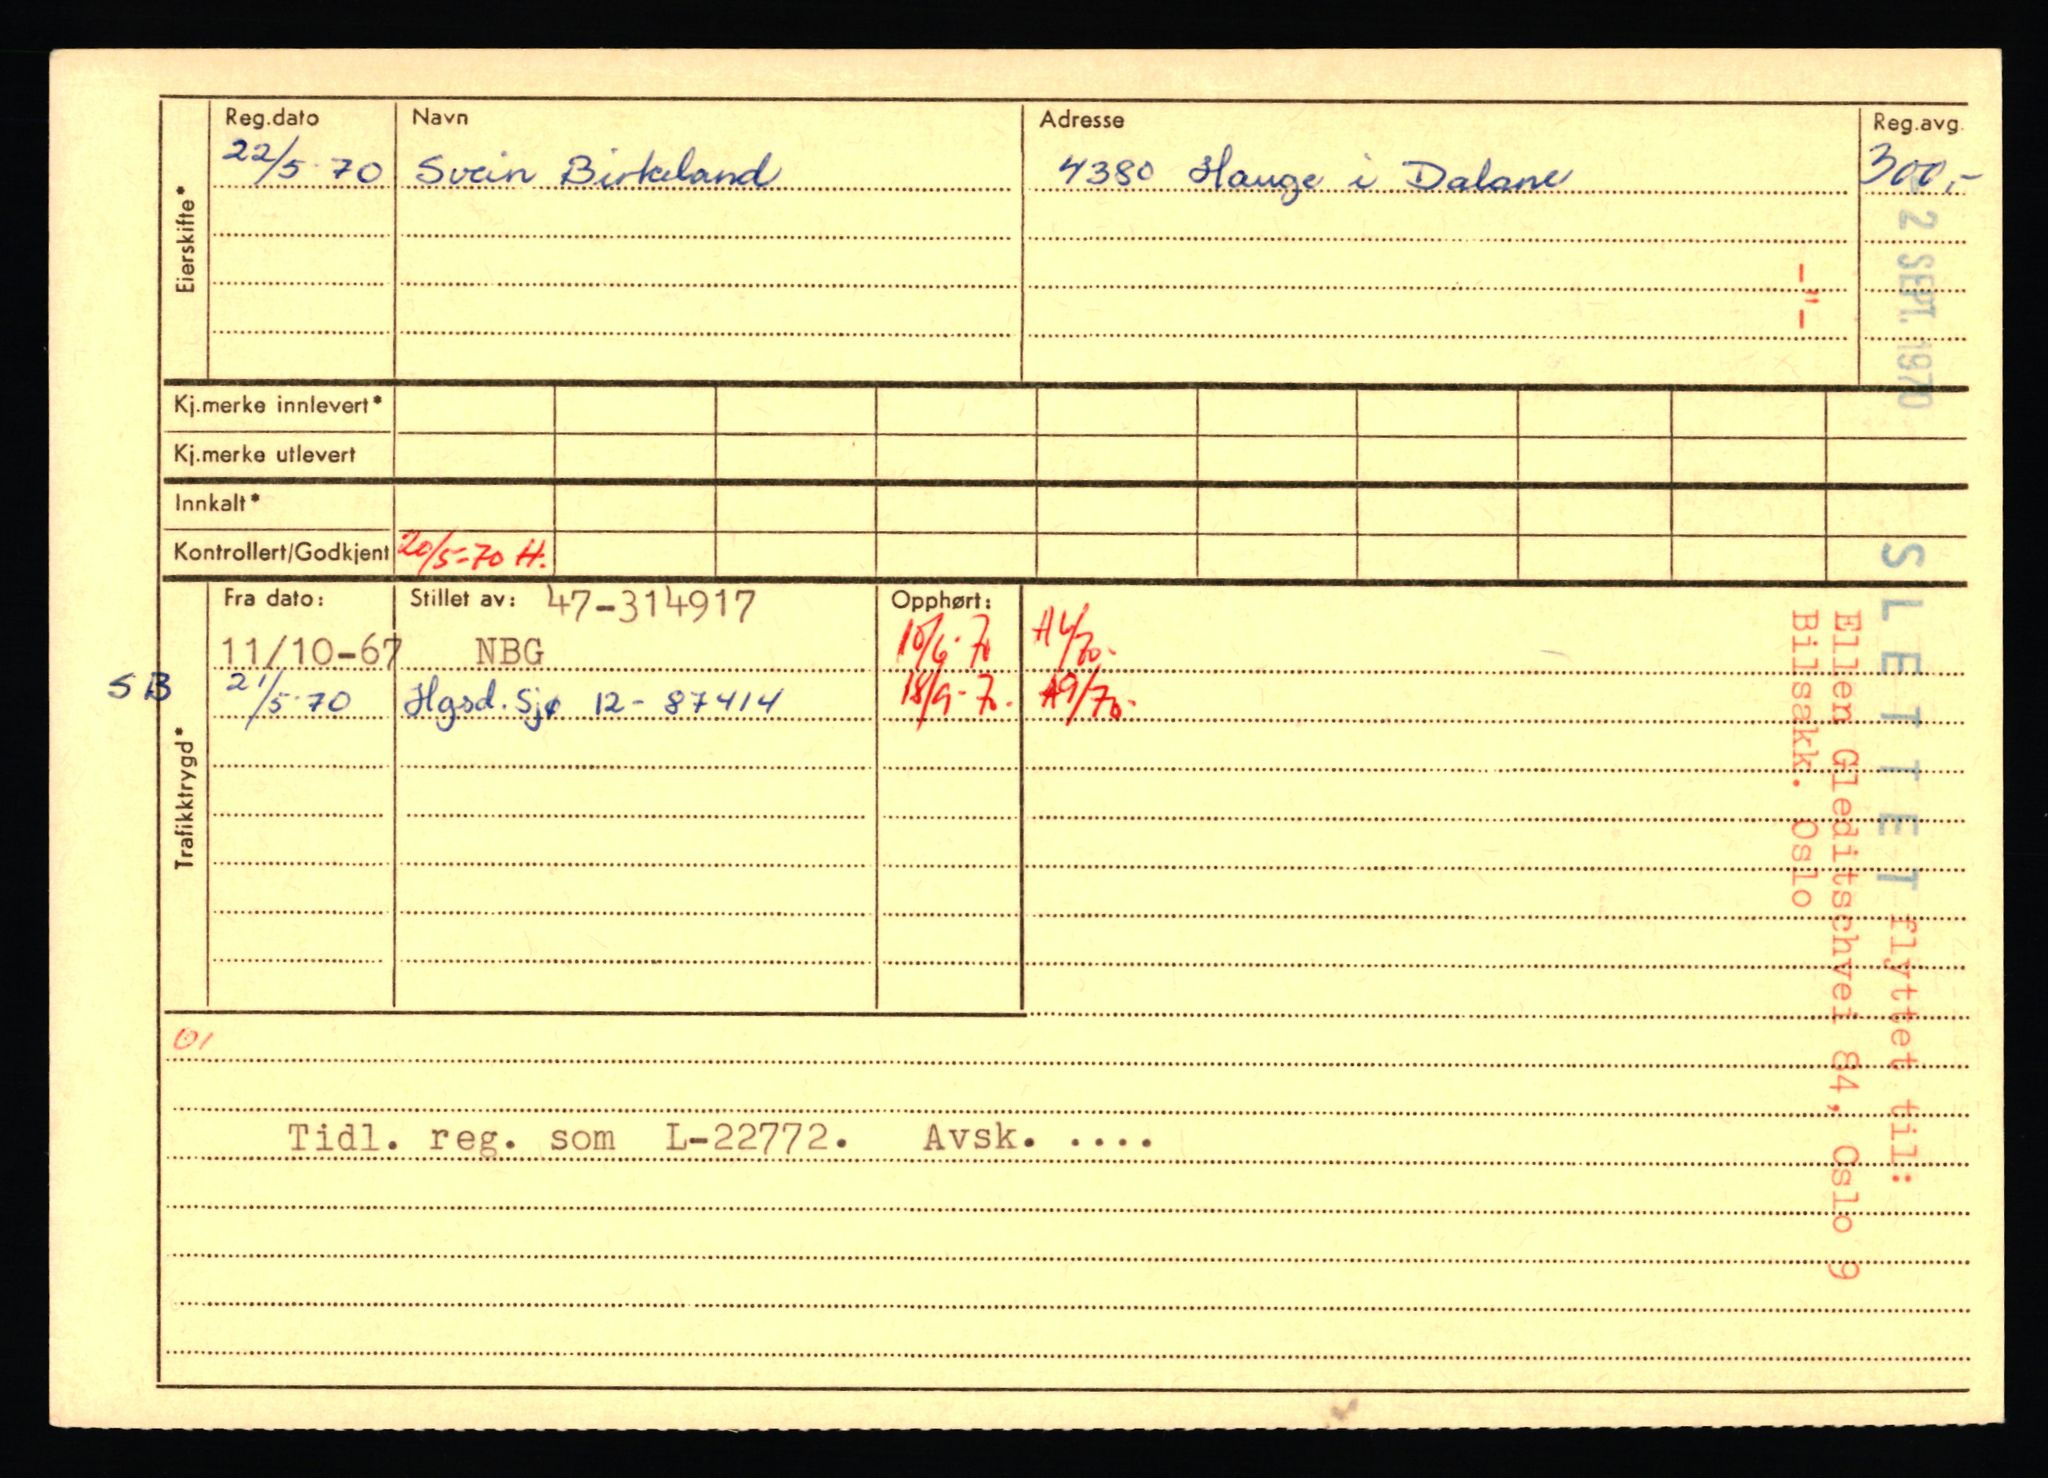 Reg.dato Navn Adresse Reg.avg.
22/5-70 Svein Birkeland 4380 Hauge i Dalane 300,-
Eierskifte*
-"-
2 SEPT. 1970
Kj.merke innlevert*
Kj.merke utlevert
Innkalt*
Kontrollert/Godkjent 20/5-70 H.
Fra dato: Stillet av: 47-314917 Opphørt:
11/10-67 NBG 10/6-70 A6/70.
SB 21/5-70 Hgsd. Sjø 12-87414 18/9-70. A9/70.
Trafikktrygd*
SLETTET flyttet til:
Ellen Gleditschvei 84, Oslo 9
Bilsakk. Oslo
01
Tidl. reg. som L-22772. Avsk. ....